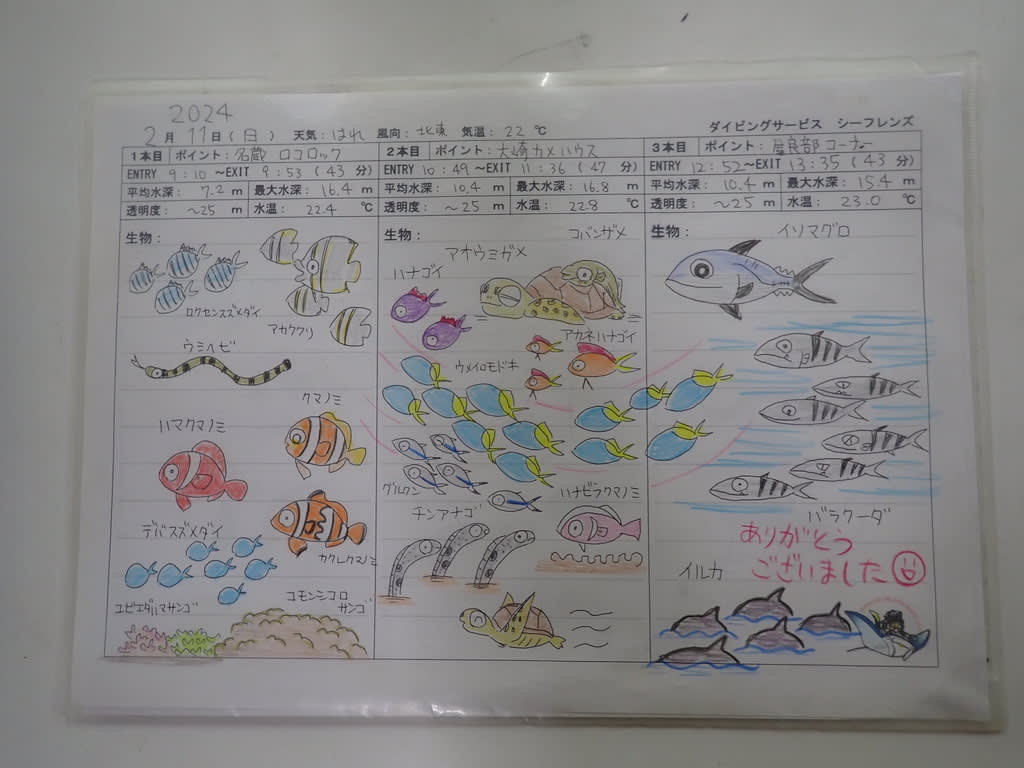 2024
2月 11日(日) 天気:はれ 風向:北東 気温:22℃ ダイビングサービス シーフレンズ
1本目 ポイント:名蔵 ロコロック
ENTRY 9:10 ~EXIT 9:53 (43 分)
平均水深: 7.2 m 最大水深: 16.4 m
透明度: ~25 m 水温: 22.4 ℃
生物:
ロクセンスズメダイ
アカククリ
ウミヘビ
クマノミ
ハマクマノミ
デバスズメダイ
カクレクマノミ
ユビエダハマサンゴ
コモンシコロ
サンゴ
2本目 ポイント:大崎カメハウス
ENTRY 10:49 ~EXIT 11:36 (47 分)
平均水深: 10.4 m 最大水深: 16.8 m
透明度: ~25 m 水温: 22.8 ℃
生物:
コバンザメ
アオウミガメ
ハナゴイ
アカネハナゴイ
ウメイロモドキ
グルクン
ハナビラクマノミ
チンアナゴ
3本目 ポイント:屋良部コーナー
ENTRY 12:52 ~EXIT 13:35 (43 分)
平均水深: 10.4 m 最大水深: 15.4 m
透明度: ~25 m 水温: 23.0 ℃
生物:
イソマグロ
バラクーダ
ありがとう
ございました
イルカ